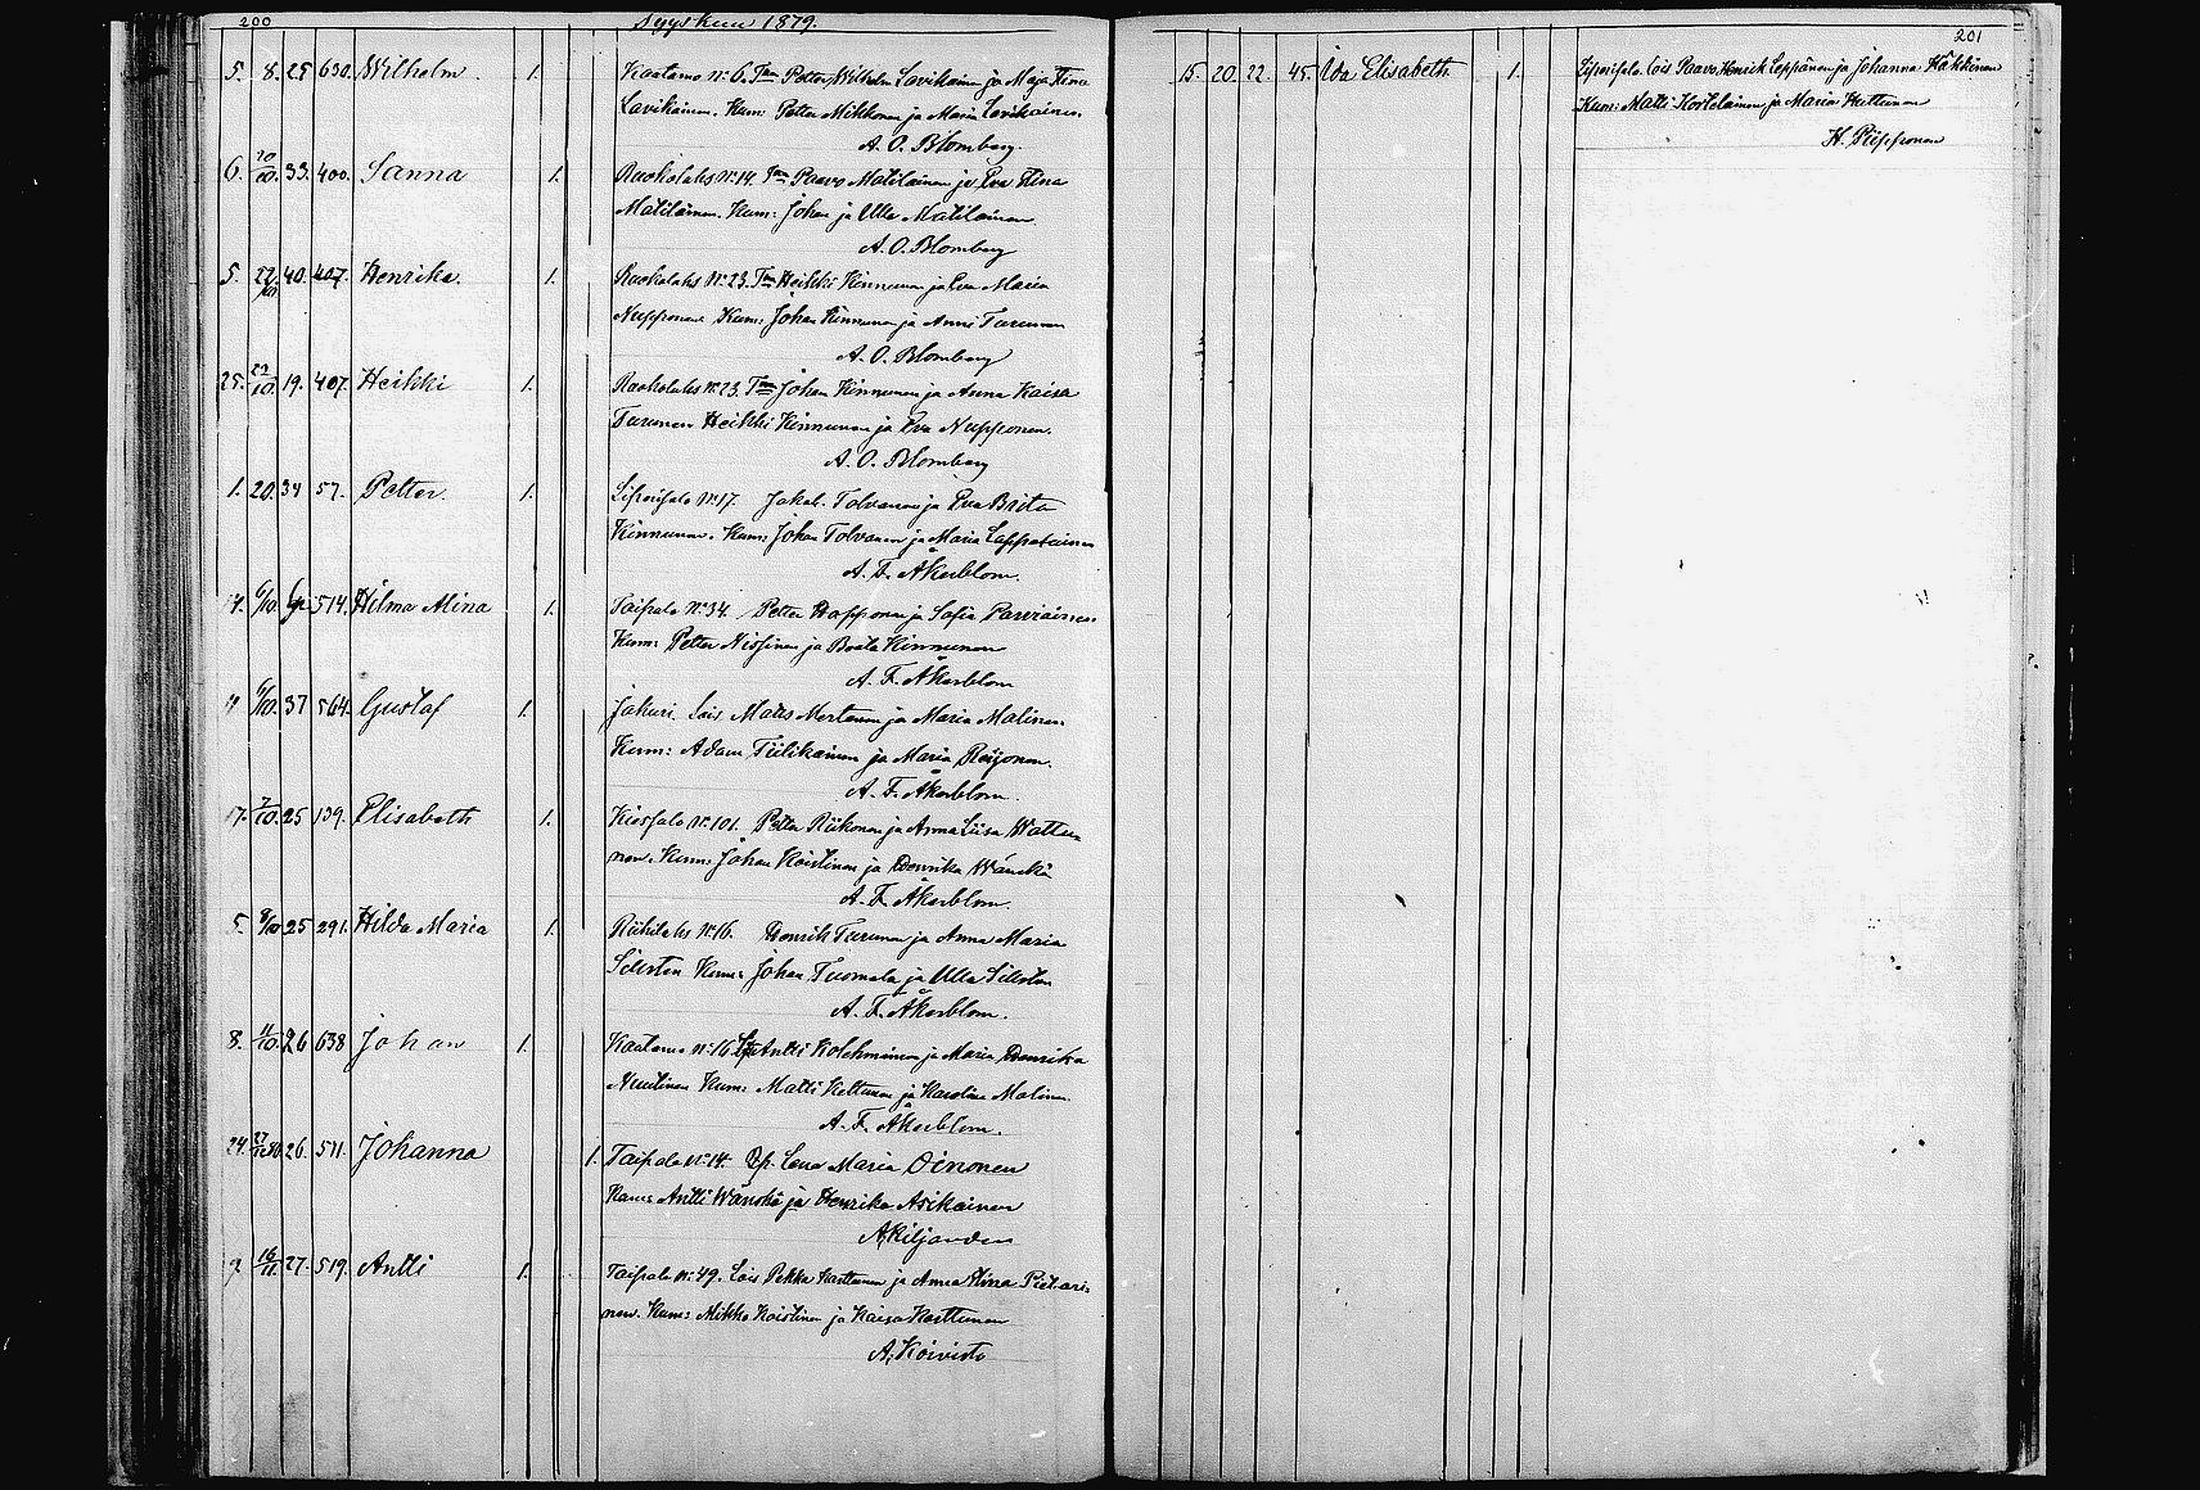 200
Syyskuu 1879.
5. 8. 25 630. Wilhelm. 1. Kaatamo No 6. Tm Petter Wilhelm Lavikainen ja Maja Stina
Lavikainen. Kum: Petter Mikkonen ja Maria Lavikainen.
A. O. Blomberg.
6. 10/10. 33. 400. Sanna 1. Ruokolaks No 14. Tm Paavo Matilainen ja Eva Stina
Matilainen. Kum: Johan ja Ulla Matilainen
A. O. Blomberg
5. 22/10 40. 407. Henrika. 1. Ruokolaks No 23. Tm Heikki Kinnunen ja Eva Maria
Nupponen Kum: Johan Kinnunen ja Anni Turunen
A. O. Blomberg
25. 22/10. 19. 407. Heikki 1. Ruokolaks No 23. Tm Johan Kinnunen ja Anna Kaisa
Turunen Heikki Kinnunen ja Eva Nupponen.
A. O. Blomberg
1. 20. 34 57. Petter. 1. Liperisalo No 17. Jakob. Tolvanen ja Eva Brita
Kinnunen. Kum: Johan Tolvanen ja Maria Lappalainen
A. F. Åkerblom.
6/10. 514. Hilma Alina 1. Taipale No 34. Petter Happonen ja Sofia Parviainen.
Kum: Petter Nissinen ja Beata Kinnunen
A. F. Åkerblom
6/10. 37 564. Gustaf 1. Jakuri. Lois Mats Mertanen ja Maria Malinen.
Kum: Adam Tiilikainen ja Maria Reijonen.
A. F. Åkerblom.
17. 7/10. 25 139. Elisabeth 1. Kiessalo No 101. Petter Riikonen ja Anna Liisa Wattu=
nen. Kum: Johan Koistinen ja Henrika Wänskä
A. F. Åkerblom.
5. 8/10 25 291. Hilda Maria 1. Riihilaks No 16. Henrik Turunen ja Anna Maria
Silesten Kum: Johan Tuomala ja Ulla Silesten
A. F. Åkerblom.
8. 11/10. 26 638 Johan 1. Kaatamo No 16 Antti Kolehmainen ja Maria Henrika
Nuutinen Kum: Matti Kettunen ja Karolina Malinen.
A. F. Åkerblom.
24. 26. 511. Johanna 1. Taipale No 14. Lena Maria Oinonen
Kum: Antti Wänskä ja Henrika Asikainen
A. Kiljanden
9 16/11. 27. 519. Antti 1. Taipale No 49. Lois Pekka Karttunen ja Anna Stina Pietari=
nen. Kum: Mikko Koistinen ja Kaisa Karttunen
A. Koivisto
201
15. 20. 22. 45. Ida Elisabeth 1. Liperisalo. Lois Paavo Henrik Leppänen ja Johanna Häkkinen
Kum: Matti Kortelainen ja Maria Huttunen
H. Piipponen